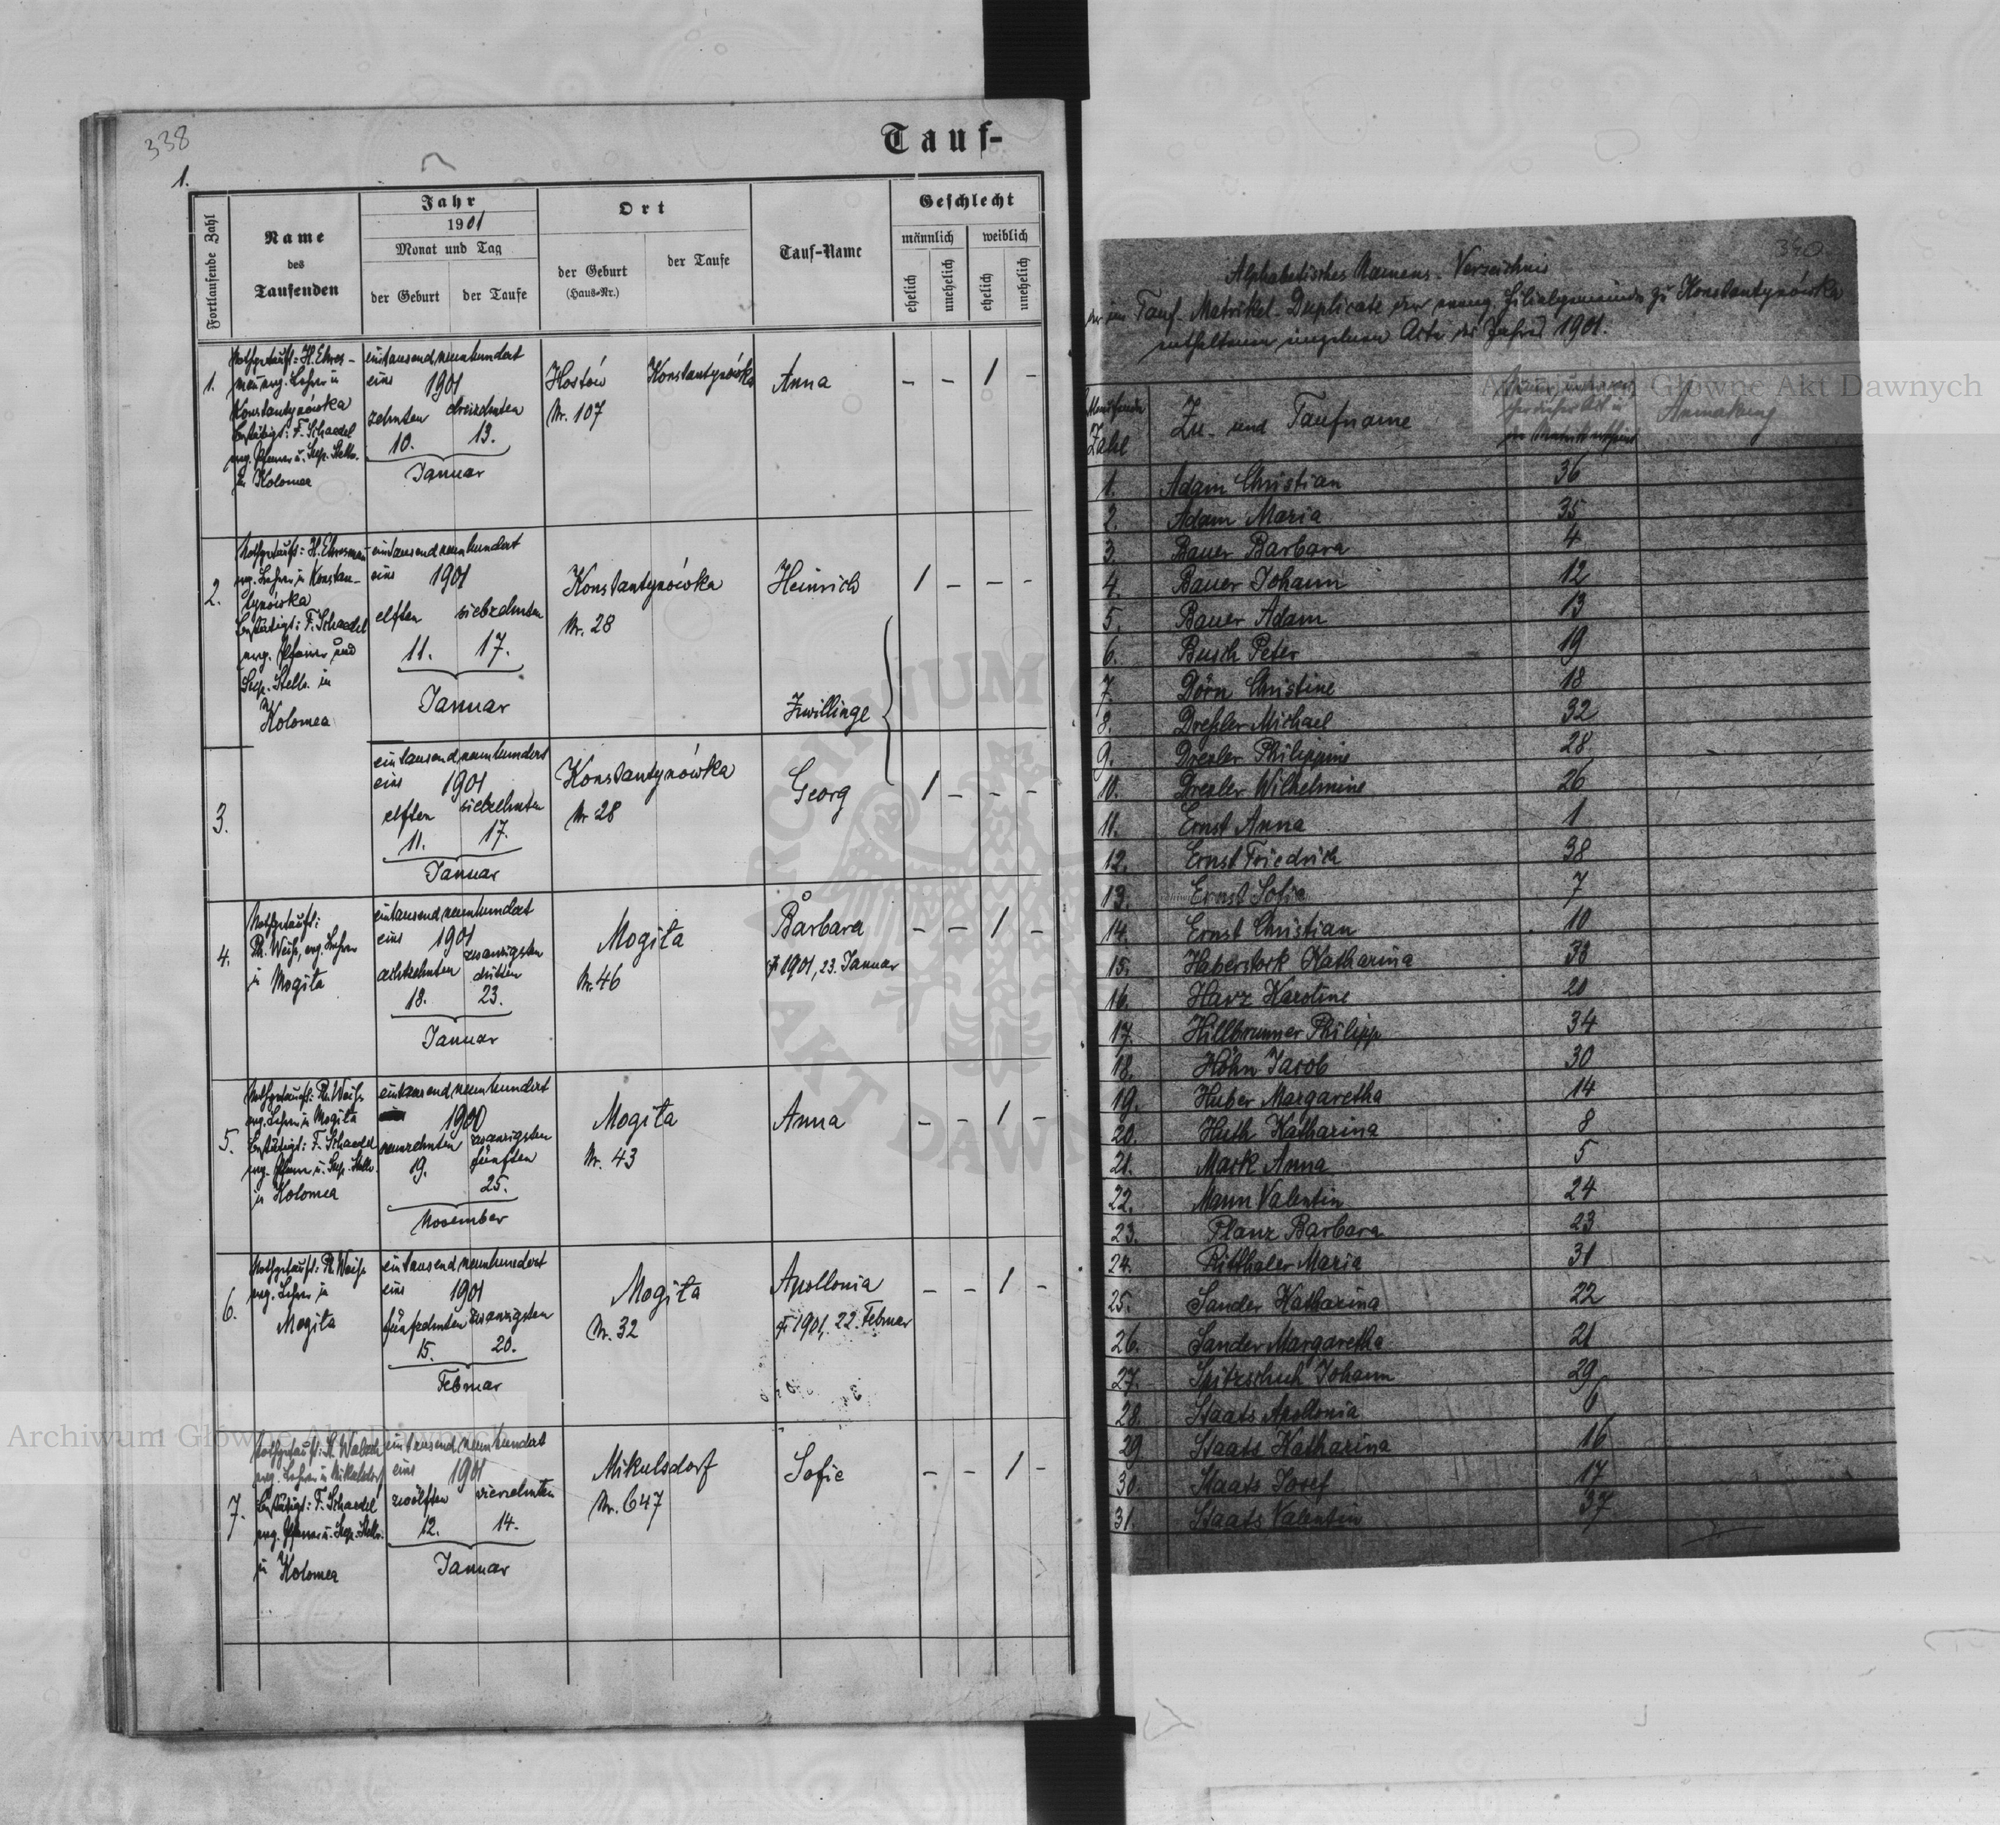 338
Tauf-
1.
Fortlaufende Zahl
Name
des
Taufenden
Jahr
1901
Monat und Tag
der Geburt
der Taufe
Ort
der Geburt
(Haus-Nr.)
der Taufe
Tauf-Name
Geschlecht
männlich
weiblich
ehelich
unehelich
ehelich
unehelich
1.
Nothgetauft: H. Ehres-
Konstantynówka
bestätigt: F. Schaedel
Kolomea
eintausendneunhundert
eins 1901
zehnten dreizehnten
10. 13.
Januar
Hostów
Nr. 107
Konstantynówka
Anna
– – 1 –
2.
Nothgetauft: H. Ehresman
evg. Lehrer in Konstan-
tynówka
bestätigt: F. Schaedel
evg. Pfarrer und
Sup. Stellv. in
Kolomea
eintausendneunhundert
eins 1901
elften siebzehnten
11. 17.
Januar
Konstantynówka
Nr. 28
Heinrich
Zwillinge
1 – – –
3.
eintausendneunhundert
eins 1901
elften siebzehnten
11. 17.
Januar
Konstantynówka
Nr 28
Georg
1 – – –
4.
Nothgetauft:
Ph. Weiß, evg. Lehrer
in Mogila
eintausendneunhundert
eins 1901
achtzehnten zwanzigsten
dritten
18. 23.
Januar
Mogila
Nr. 46
Barbara
† 1901, 23. Januar
– – 1 –
5.
Nothgetauft: Ph. Weiß
evg. Lehrer in Mogila
bestätigt: F. Schaedel
evg. Pfarrer u. Sup. Stellv.
in Kolomea
eintausendneunhundert
1900
neunzehnten zwanzigsten
19. fünften
25.
November
Mogila
Nr. 43
Anna
– – 1 –
6.
Nothgetauft: Ph. Weiß
evg. Lehrer in
Mogila
eintausendneunhundert
eins 1901
fünfzehnten zwanzigsten
15. 20.
Februar
Mogila
Nr. 32
Apollonia
† 1901, 22. Februar
– – 1 –
7.
evg. Lehrer in Mikulsdorf
bestätigt: F. Schaedel
evg. Pfarrer u. Sup. Stellv.
in Kolomea
eintausendneunhundert
eins 1901
zwölften vierzehnten
12. 14.
Januar
Mikulsdorf
Nr. 647
Sofie
– – 1 –
340.
Alphabetisches Namens-Verzeichnis
der im Tauf-Matrikel-Duplicate der evang. Filialgemeinde zu Konstantynówka
enthaltenen einzelnen Acte des Jahres 1901.
Zahl
Zu- und Taufname
Anmerkung
1. Adam Christian 36
2. Adam Maria 35
3. Bauer Barbara 4
4. Bauer Johann 12
5. Bauer Adam 13
6. Busch Peter 19
7. Dörn Christine 18
8. Dreßler Michael 32
9. Drexler Philippine 28
10. Drexler Wilhelmine 26
11. Ernst Anna 1
12. Ernst Friedrich 38
13. Ernst Sofia 7
14. Ernst Christian 10
15. Haberstock Katharina 33
16. Harz Karoline 20
17. Hillbrunner Philipp 34
18. Höhn Jacob 30
19. Huber Margaretha 14
20. Huth Katharina 8
21. Mark Anna 5
22. Mann Valentin 24
23. Planz Barbara 23
24. Ritthaler Maria 31
25. Sander Katharina 22
26. Sander Margaretha 21
27. Spitzschuh Johann 29
28. Staats Apollonia 6
29 Staats Katharina 16
30. Staats Josef 17
31. Staats Valentin 37
Archiwum Główne Akt Dawnych
Archiwum Główne Akt Dawnych
ARCHIWUM
AKT DAWN